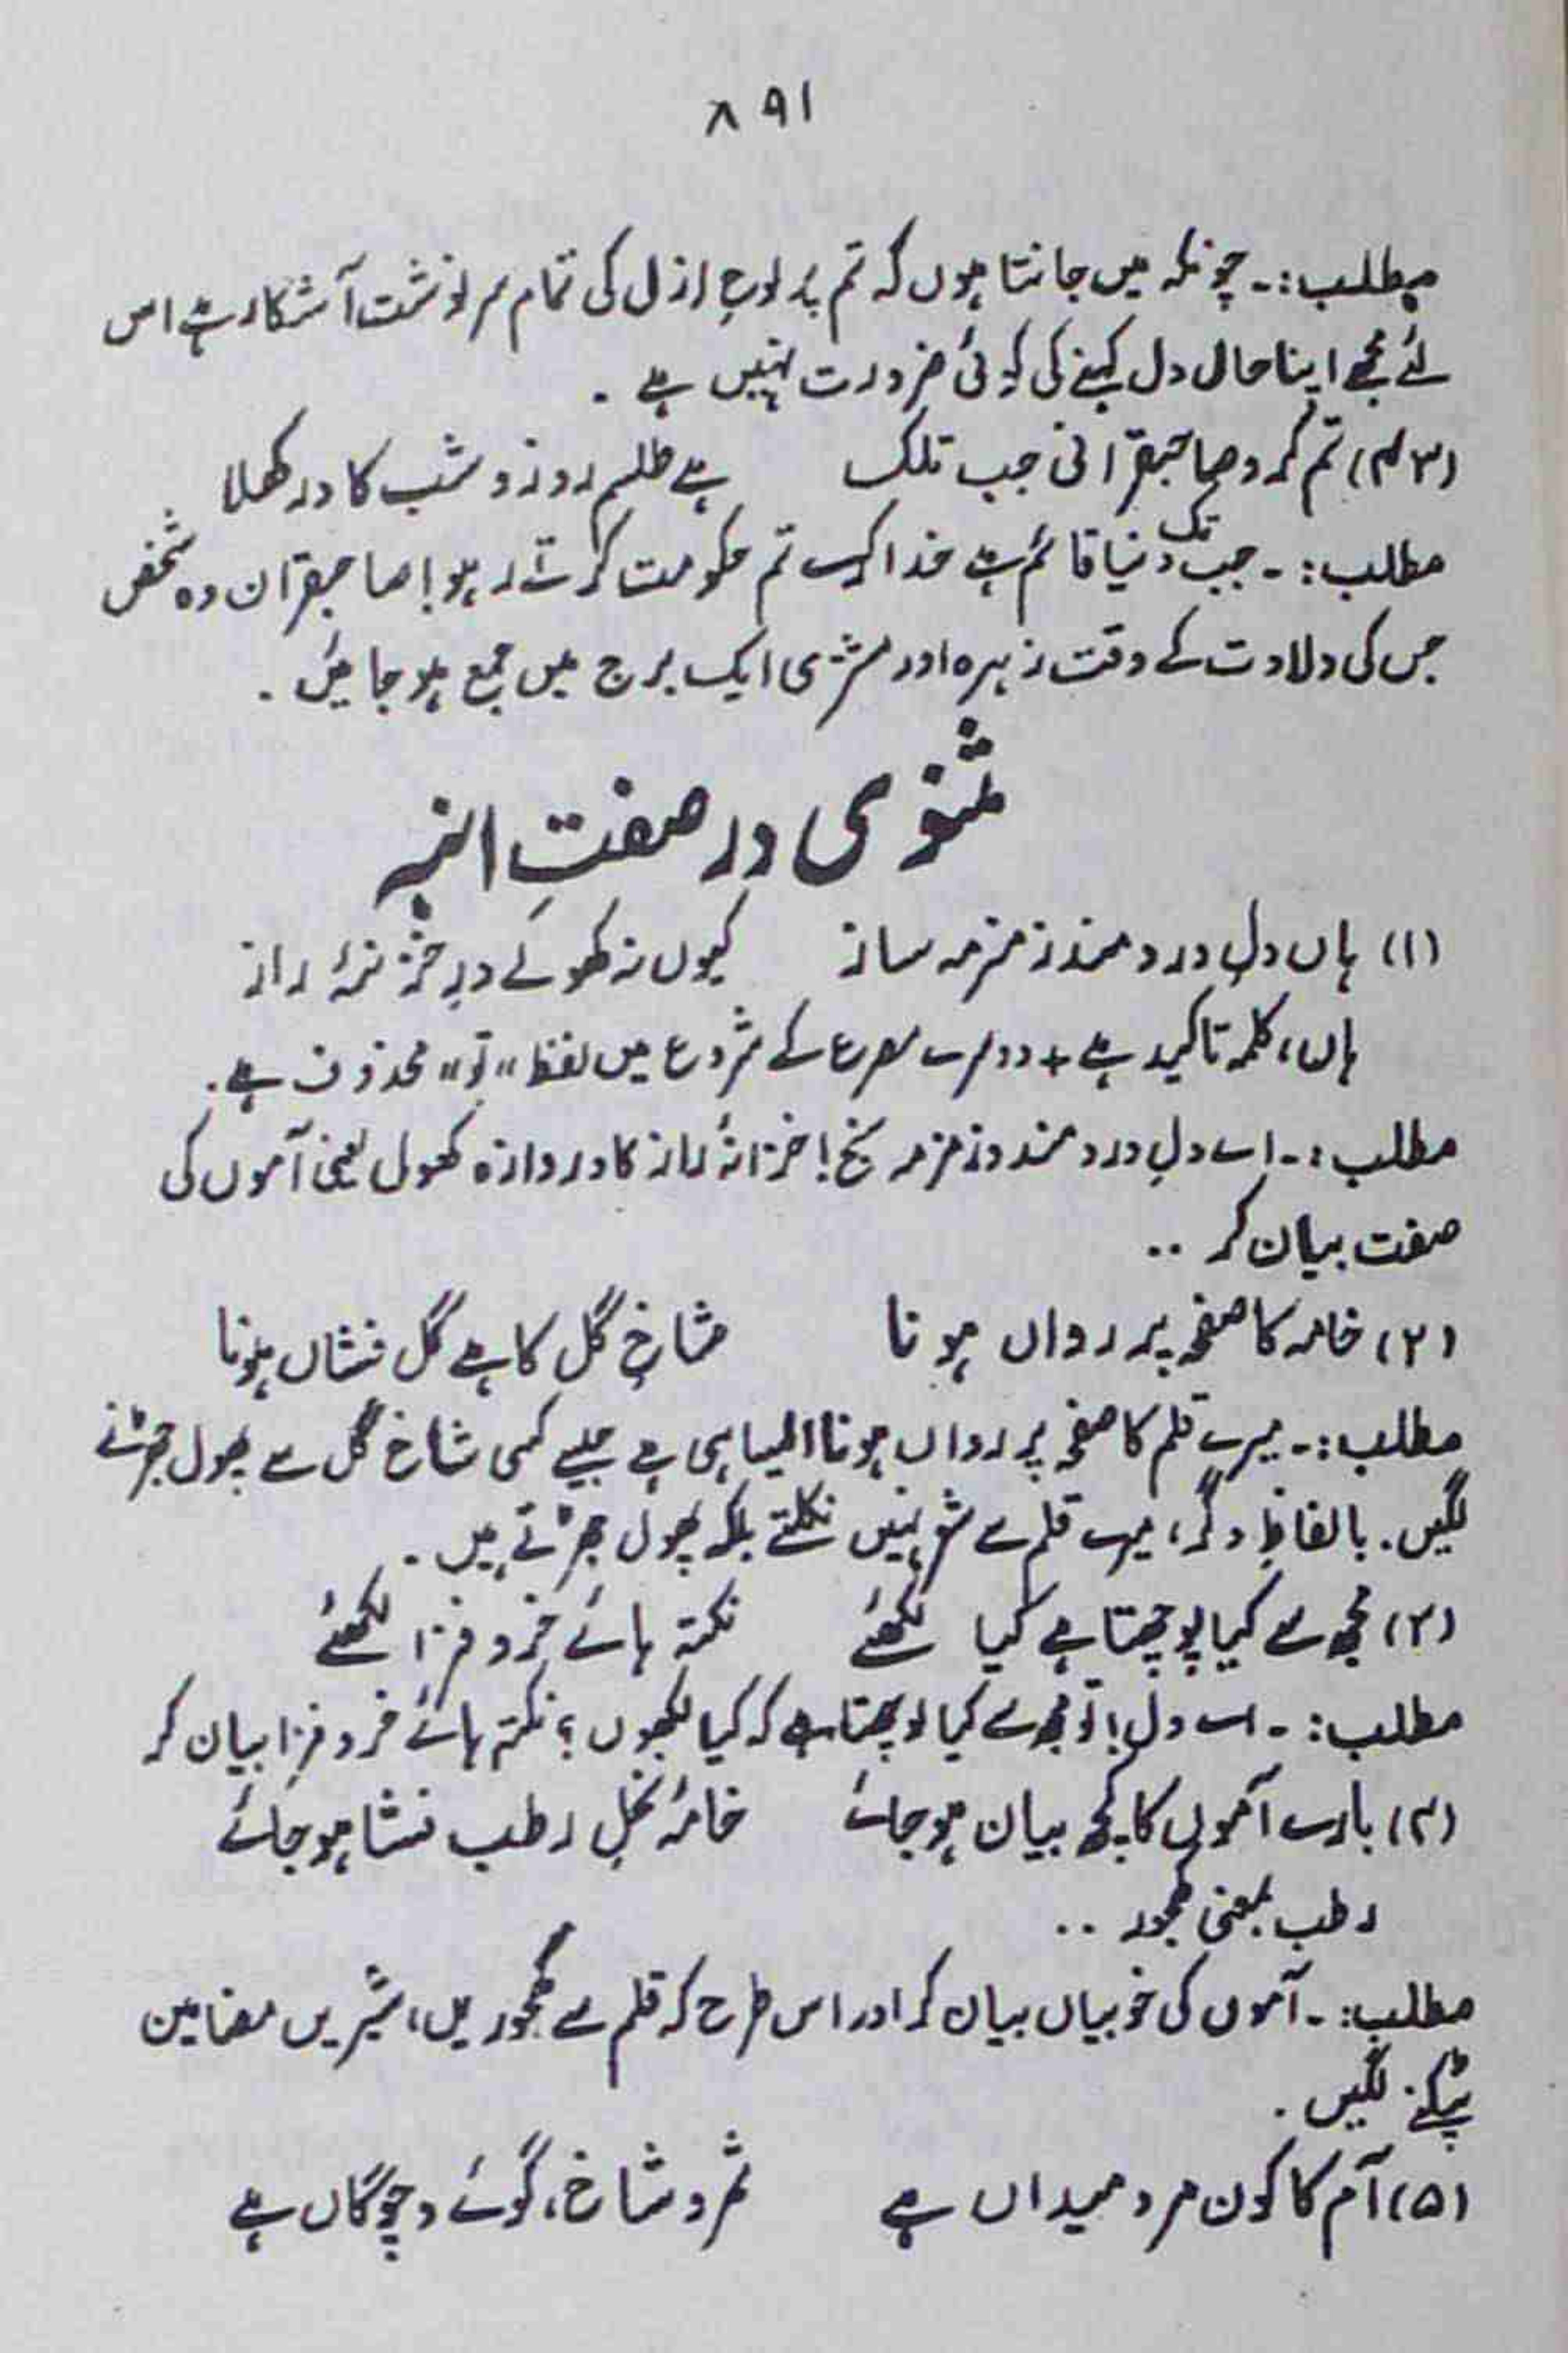 ۸۹۱
مطلب:۔ چونکہ میں جانتا ہوں کہ تم پر لوحِ ازل کی تمام سرنوشت آشکار ہے اس
لئے مجھے اپنا حال دل کہنے کی کوئی ضرورت نہیں ہے ۔
(۳۴) تم کرو صاحبقرانی جب تلک ہے طلسم روز و شب کا در کھلا
مطلب:۔ جب تک دنیا قائم ہے خدا کرے تم حکومت کرتے رہو! صاحبقران وہ شخص
جس کی ولادت کے وقت زہرہ اور مشتری ایک برج میں جمع ہو جائیں ۔
مثنوی در صفتِ انبہ
(۱) ہاں دلِ درد مند زمزمہ ساز کیوں نہ کھولے درِ خزینۂ راز
ہاں، کلمہ تاکید ہے + دوسرے مصرع کے شروع میں لفظ "تو" محذوف ہے ۔
مطلب:۔ اے دلِ درد مند و زمزمہ سنج! خزانۂ راز کا دروازہ کھول یعنی آموں کی
صفت بیان کر ۔۔
(۲) خامہ کا صفحہ پر رواں ہونا شاخِ گل کا ہے گل فشاں ہونا
مطلب:۔ میرے قلم کا صفحہ پر رواں ہونا ایسا ہی ہے جیسے کسی شاخ گل سے پھول جھڑنے
لگیں۔ بالفاظِ دگر، میرے قلم سے شعر نہیں نکلتے بلکہ پھول جھڑتے ہیں ۔
(۳) مجھ سے کیا پوچھتا ہے کیا لکھئے نکتہ ہائے خرد فزا لکھئے
مطلب:۔ اے دل! تو مجھ سے کیا پوچھتا ہے کہ کیا لکھوں؟ نکتہ ہائے خرد فزا بیان کر
(۴) بارے آموں کا کچھ بیان ہو جائے خامۂ نخلِ رطب فشا ہو جائے
رطب بمعنی کھجور ۔۔
مطلب:۔ آموں کی خوبیاں بیان کر اور اس طرح کہ قلم سے کھجوریں، شیریں مضامین
ٹپکنے لگیں ۔
(۵) آم کا کون مرد میداں ہے ثمر و شاخ، گوئے و چوگاں ہے